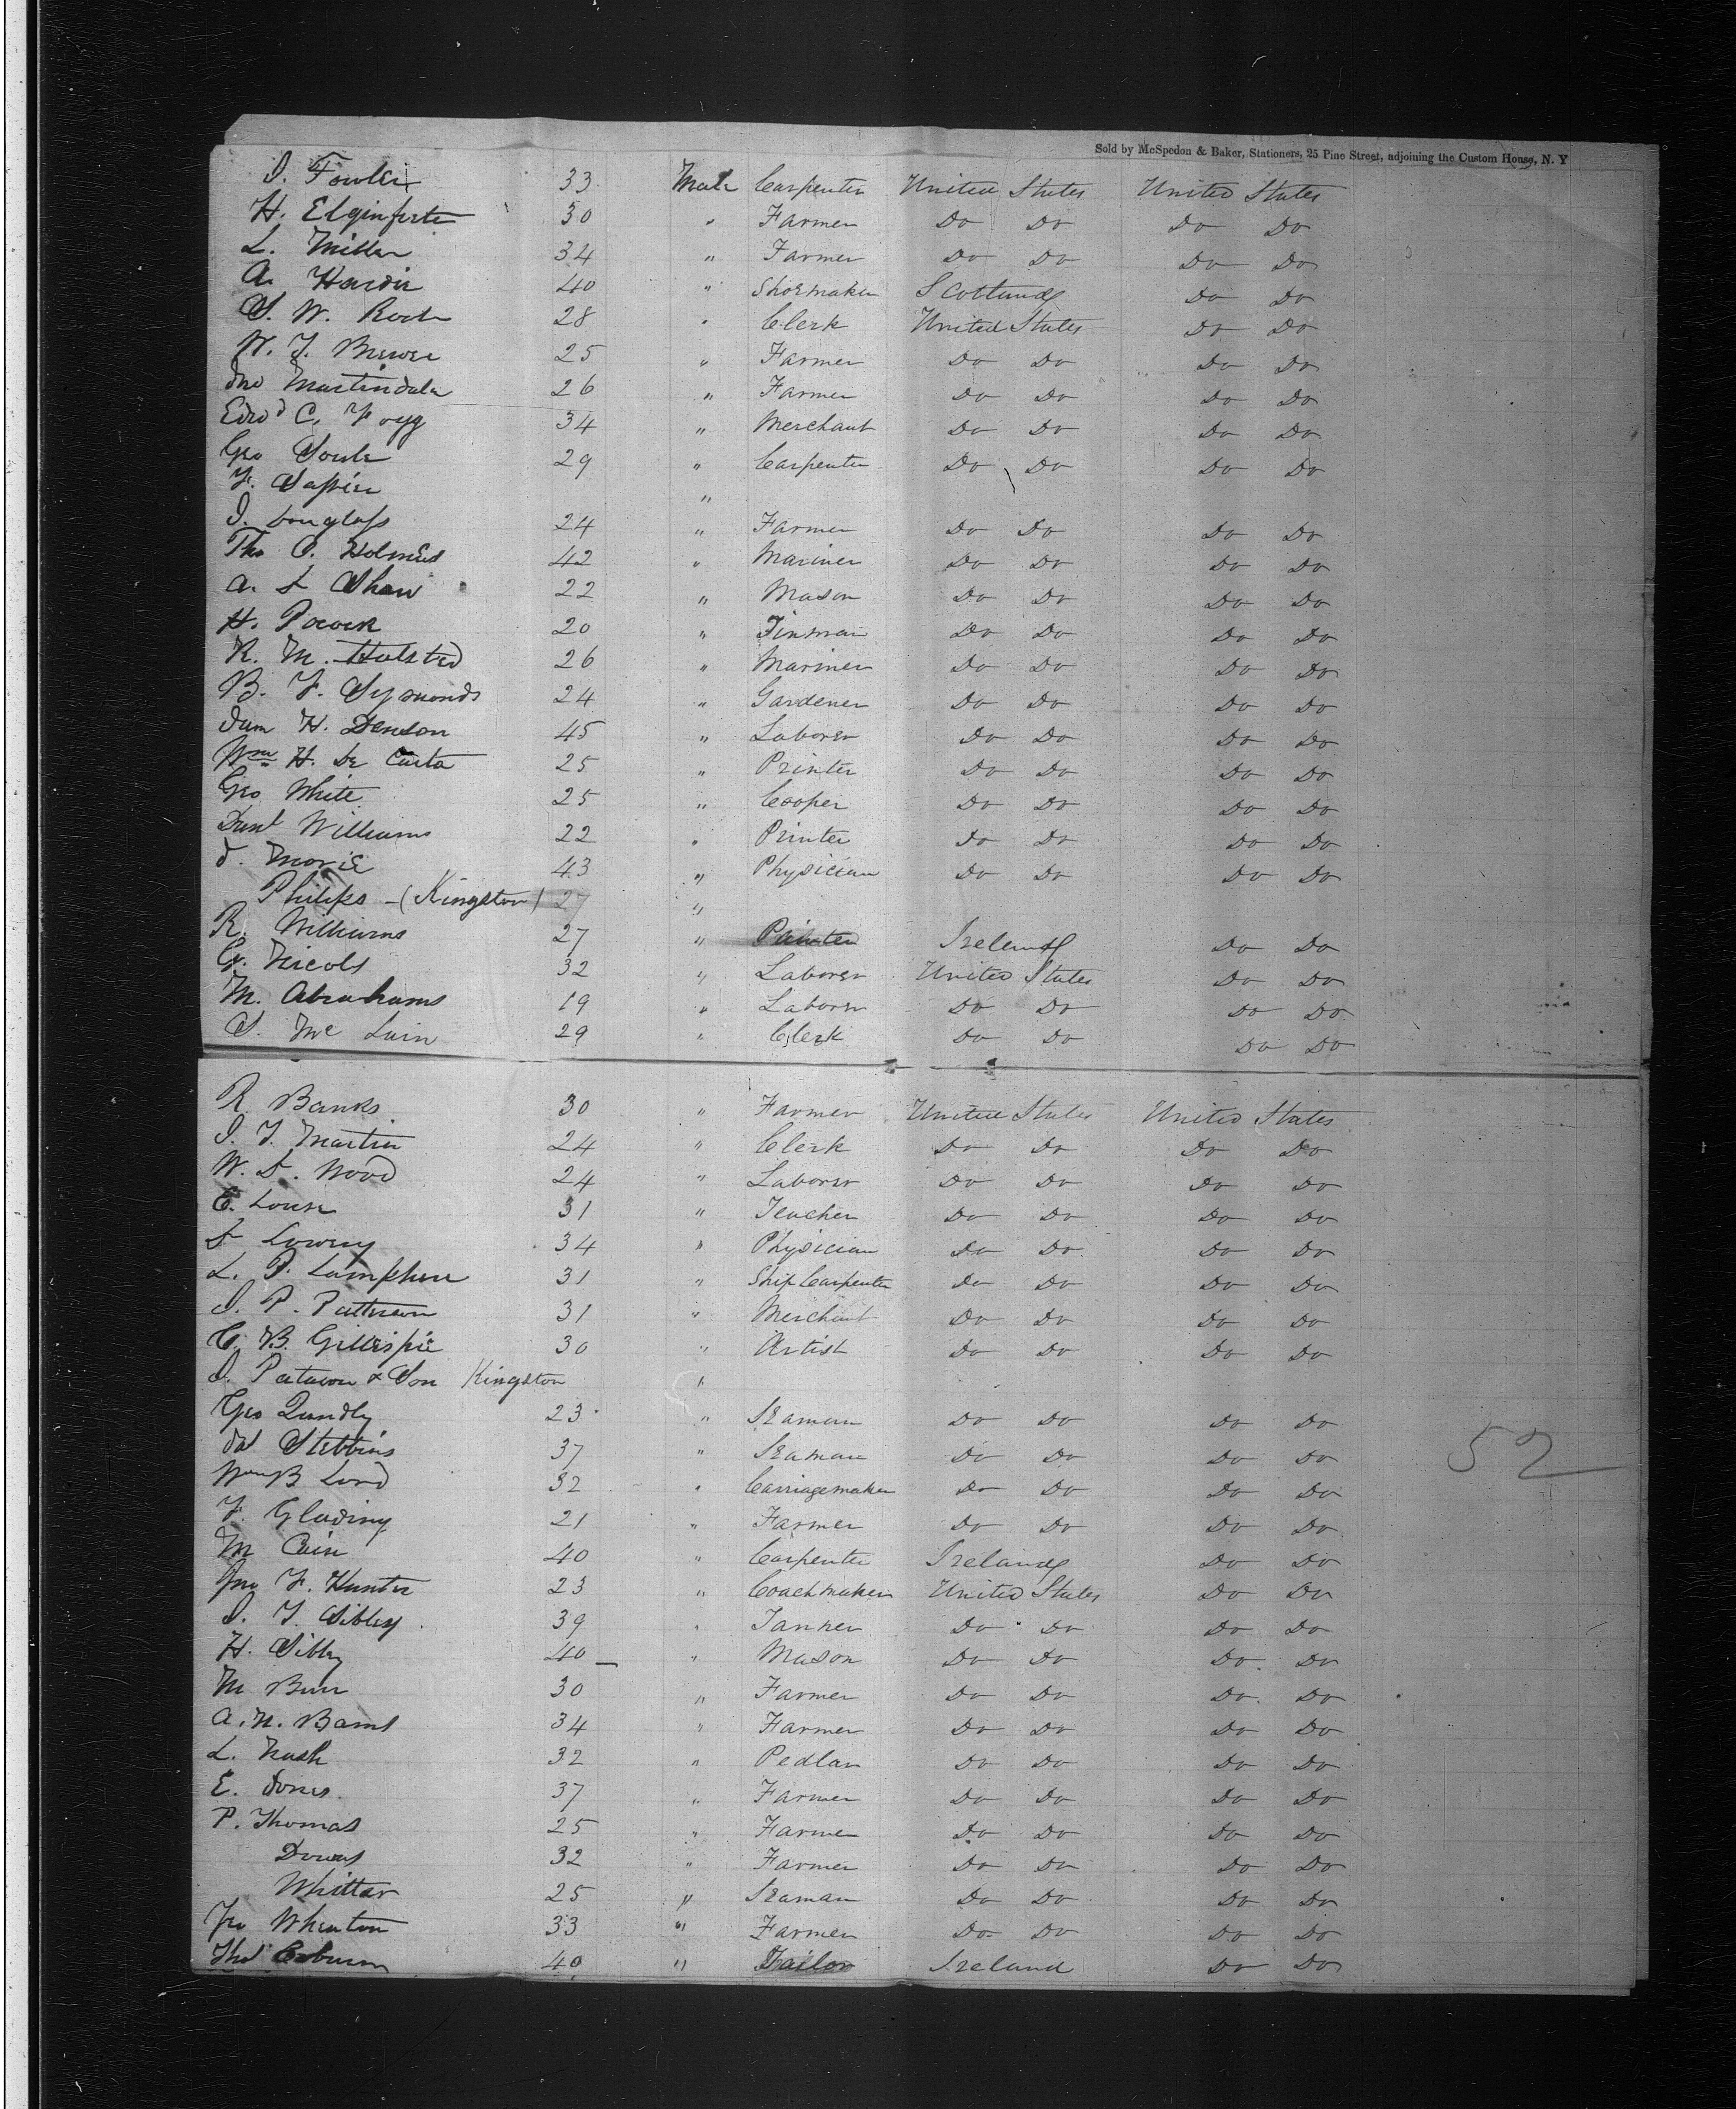 Sold by McSpedon & Baker, Stationers, 25 Pine Street, adjoining the Custom House, N. Y
J. Fowler 33 Male Carpenter United States United States
H. 30 " Farmer Do Do Do Do
L. Miller 34 " Farmer Do Do Do Do
A. Hardie 40 " Shoemaker Scotland Do Do
S. W. 28 " Clerk United States Do Do
W. T. Brewer 25 " Farmer Do Do Do Do
Jno Martindale 26 " Farmer Do Do Do Do
Edwd C. Fogg 34 " Merchant Do Do Do Do
Geo Soule 29 " Carpenter Do Do Do Do
F. "
J. Douglass 24 " Farmer Do Do Do Do
Tho C. Holmes 42 " Mariner Do Do Do Do
A. L Shaw 22 " Mason Do Do Do Do
H. Pocock 20 " Tinman Do Do Do Do
R. M. Halsted 26 " Mariner Do Do Do Do
B. F. Symonds 24 " Gardener Do Do Do Do
H. Denson 45 " Laborer Do Do Do Do
Wm H. De Costa 25 " Printer Do Do Do Do
Geo White 25 " Cooper Do Do Do Do
Danl Williams 22 " Printer Do Do Do Do
43 " Physician Do Do Do Do
Philips - (Kingston) 27 "
R. Williams 27 " Painter Ireland Do Do
G. Nicols 32 " Laborer United States Do Do
M. Abrahams 19 " Laborer Do Do Do Do
S. Mc Lain 29 " Clerk Do Do Do Do
R. Banks 30 " Farmer United States United States
J. T. Martin 24 " Clerk Do Do Do Do
W. D. Wood 24 " Laborer Do Do Do Do
E. 31 " Teacher Do Do Do Do
Lowery 34 " Physician Do Do Do Do
L. P. Lamphere 31 " Ship Carpenter Do Do Do Do
J. P. Patterson 31 " Merchant Do Do Do Do
C. B. Gillespie 30 " Artist Do Do Do Do
J. & Son Kingston "
Geo 23 " Seaman Do Do Do Do
Stebbins 37 " Seaman Do Do Do Do
52
Wm B Lord 32 " Carriagemaker Do Do Do Do
F. Glading 21 " Farmer Do Do Do Do
M Cain 40 " Carpenter Ireland Do Do
Jno F. Hunter 23 " Coachmaker United States Do Do
J. T. Sibley 39 " Tanner Do Do Do Do
H. Sibley 40 " Mason Do Do Do Do
M Burr 30 " Farmer Do Do Do Do
A. N. 34 " Farmer Do Do Do Do
L. Nash 32 " Pedlar Do Do Do Do
E. Jones 37 " Farmer Do Do Do Do
P. Thomas 25 " Farmer Do Do Do Do
Downs 32 " Farmer Do Do Do Do
25 " Seaman Do Do Do Do
Wheaton 33 " Farmer Do Do Do Do
Thos Coburn 40 " Tailor Ireland Do Do